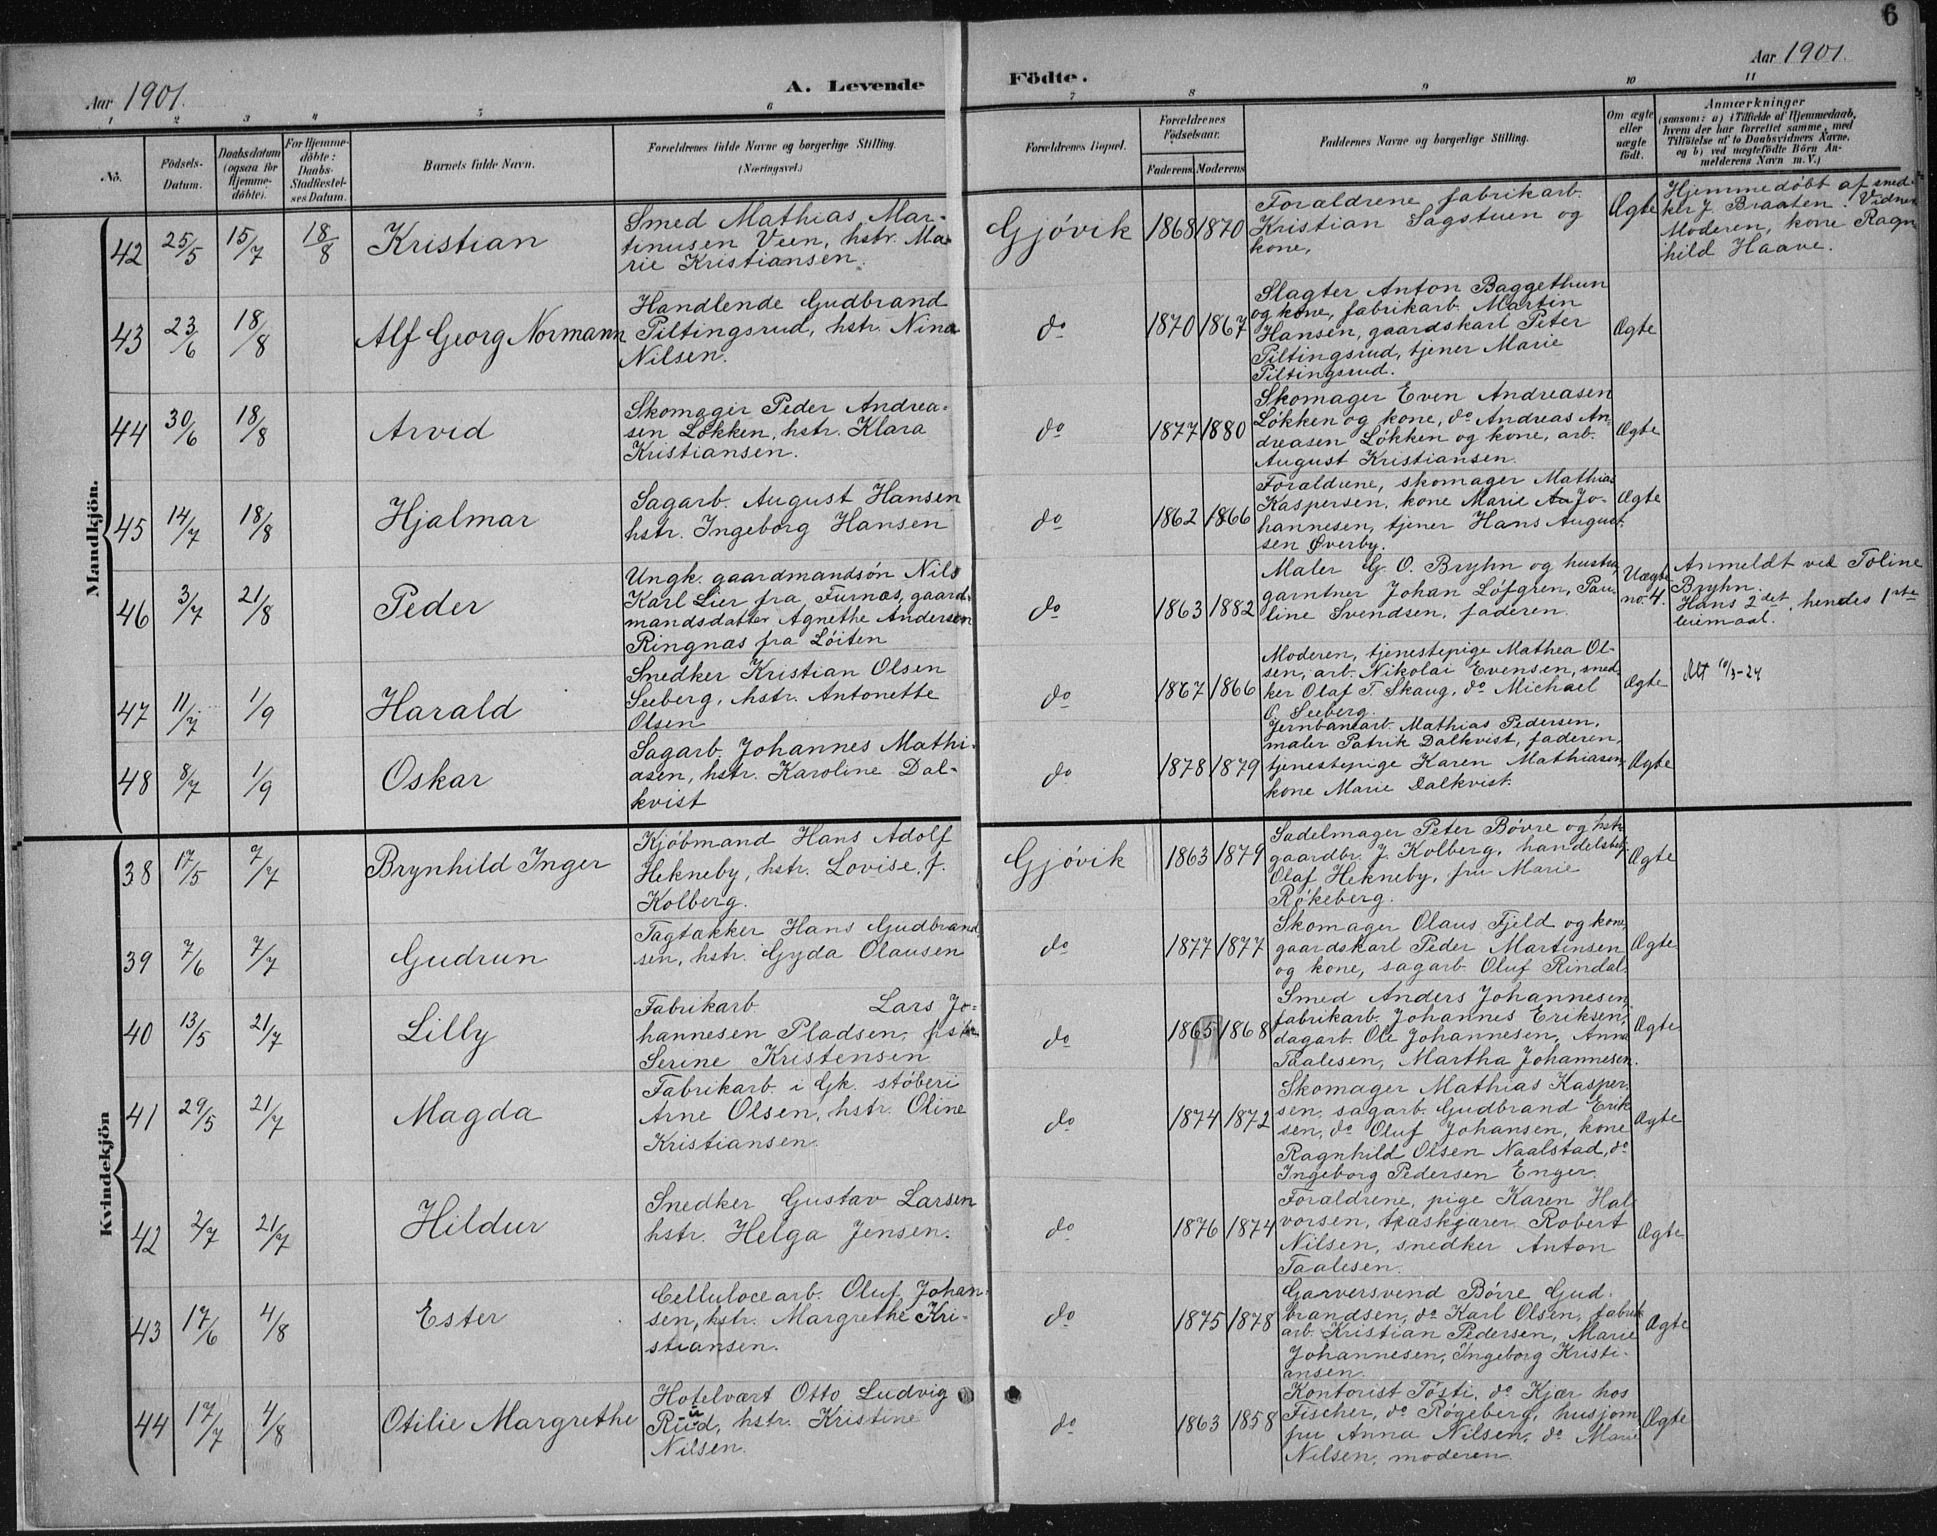 6
Aar 1901.
A. Levende
Födte.
Aar 1901.
1 2 3 4 5 6 7 8 9 10 11
No.
Födsels-
Datum.
Daabsdatum
(ogsaa for
Hjemme-
döbte).
For Hjemme-
döbte:
Daabs-
Stadfæstel-
ses Datum.
Barnets fulde Navn.
Forældrenes fulde Navne og borgerlige Stilling.
(Næringsvei.)
Forældrenes Bopæl.
Forældrenes
Födselsaar.
Faderens. Moderens.
Faddernes Navne og borgerlige Stilling.
Om ægte
eller
uægte
født.
Anmærkninger
(saasom: a) i Tilfælde af Hjemmedaab,
hvem der har forrettet samme, med
Tilföielse af to Daabsvidners Navne.
og b) ved uægtefödte Börn An-
melderens Navn m. V.)
Mandkjön.
42 25/5 15/7 18/8 Kristian
Smed Mathias Mar-
tinusen Veen, hstr. Ma-
rie Kristiansen.
Gjövik 1868 1870
Forældrene fabrikarb.
Kristian Sagstuen og
kone,
Ægte
Hjemmedöbt af sned-
ker J. Braaten. Vidner
Moderen, kone Ragn
hild Haave.
43 23/6 18/8 Alf Georg Normann
Handlende Gudbrand
Piltingsrud, hstr. Nina
Nilsen.
do 1870 1867
Slagter Anton Baggethun
og kone, fabrikarb. Martin
Hansen, gaardskarl Peter
Piltingsrud, tjener Marie
Piltingsrud.
Ægte
44 30/6 18/8 Arvid
Skomager Peder Andrea-
sen Lökken, hstr. Klara
Kristiansen.
do 1877 1880
Skomager Even Andreasen
Lökken og kone, do Andreas An
dreasen Lökken og kone, arb.
August Kristiansen.
Ægte
45 14/7 18/8 Hjalmar
Sagarb. August Hansen
hstr. Ingeborg Hansen
do 1862 1866
Forældrene, skomager Mathias
Kaspersen, kone Marie Jo-
hannesen, tjener Hans August-
sen Øverby.
Ægte
46 3/7 21/8 Peder
Ungk. gaardmandsön Nils
Karl Lier fra Furnæs, gaard-
mandsdatter Agnethe Andersen
Ringnæs fra Löiten
do 1863 1882
Maler G. O. Bryhn og hustru
gartner Johan Löfgren, Pau-
line Svendsen, faderen.
Uægte
no. 4.
Anmeldt ved Toline
Bryhn.
Hans 2det, hendes 1ste
leiemaal.
47 11/7 1/9 Harald
Snedker Kristian Olsen
Seeberg, hstr. Antonette
Olsen
do 1867 1866
Moderen, tjenestepige Mathea Ol-
sen, arb. Nikolai Evensen, sned-
ker Olaf T. Skaug, do Michael
O. Seeberg.
Ægte
Att 10/3-24
48 8/7 1/9 Oskar
Sagarb. Johannes Mathi-
asen, hstr. Karoline Dal-
kvist
do 1878 1879
Jernbanearb. Mathias Pedersen,
maler Patrik Dalkvist, faderen,
tjenestepige Karen Mathiasen,
kone Marie Dalkvist.
Ægte
Kvindekjön
38 17/5 7/7 Brynhild Inger
Kjöbmand Hans Adolf
Hekneby, hstr. Lovise, f.
Kolberg.
Gjövik 1863 1879
Sadelmager Peter Bövre og hstr.
gaardbr. J. Kolberg, handelsbetj.
Olaf Hekneby, fru Marie
Rökeberg.
Ægte
39 7/6 7/7 Gudrun
Tagtækker Hans Gudbrand
sen, hstr. Gyda Olausen
do 1877 1877
Skomager Olaus Fjeld og kone,
gaardskarl Peder Martinsen
og kone, sagarb. Oluf Rindal.
Ægte
40 13/5 21/7 Lilly
Fabrikarb Lars Jo-
hannesen Pladsen, hstr
Serine Kristensen
do 1865 1868
Smed Anders Johannesen,
fabrikarb. Johannes Eriksen,
dagarb. Ole Johannesen, Anna
Taalesen, Martha Johannesen.
Ægte
41 29/5 21/7 Magda
Fabrikarb. i Gk. stöberi
Arne Olsen, hstr. Oline
Kristiansen.
do 1874 1872
Skomager Mathias Kasper-
sen, sagarb. Gudbrand Erik
sen, do Oluf Johansen, kone
Ragnhild Olsen Naalstad, do
Ingeborg Pedersen Enger.
Ægte
42 2/7 21/7 Hildur
Snedker Gustav Larsen
hstr. Helga Jensen.
do 1876 1874
Forældrene, pige Karen Hal
vorsen, træskjærer Robert
Nilsen, snedker Anton
Taalesen.
Ægte
43 17/6 4/8 Ester
Cellulocearb. Oluf Johan-
sen, hstr. Margrethe Kri-
stiansen.
do 1875 1878
Garversvend Börre Gud-
brandsen, do Karl Olsen, fabrik
arb. Kristian Pedersen, Marie
Johannesen, Ingeborg Kristi-
ansen.
Ægte
44 17/7 4/8 Otilie Margrethe
Hotelvært Otto Ludvig
Ruud, hstr. Kristine
Nilsen.
do 1863 1858
Kontorist Tösti, do Kjær hos
Fischer, do Rögeberg, husjom
fru Anna Nilsen, do Marie
Nilsen, moderen.
Ægte